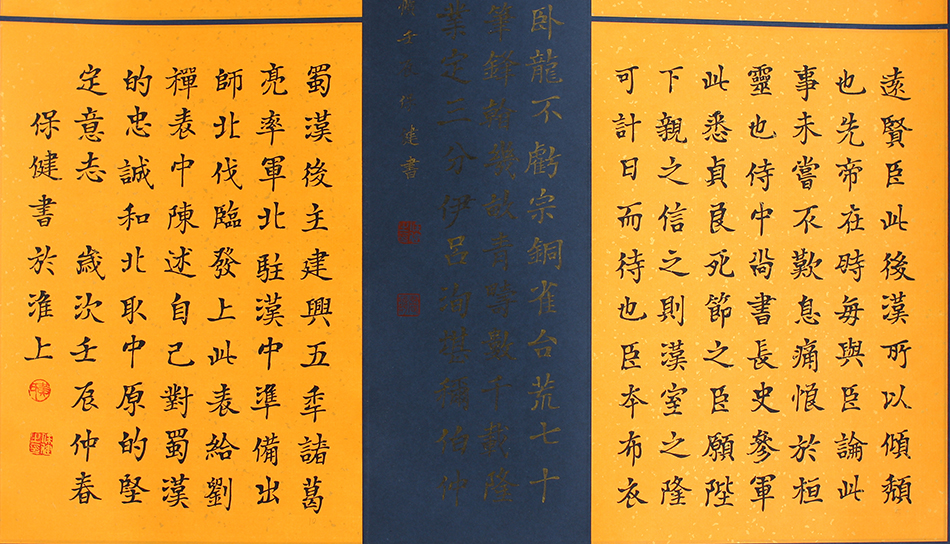 遠賢臣此後漢所以傾頹
也先帝在時每與臣論此
事未嘗不歎息痛恨於桓
靈也侍中尚書長史參軍
此悉貞良死節之臣願陛
下親之信之則漢室之隆
可計日而待也臣本布衣
卧龍不虧宗銅雀台荒七十
筆鋒 千載隆
定二分伊呂 稱伯仲
壬 建書
蜀漢後主建興五年諸葛
亮率軍北駐漢中準備出
師北伐臨發上此表給劉
禪表中陳述自己對蜀漢
的忠誠和北取中原的堅
定意志 歲次壬辰仲春
保健書於淮上